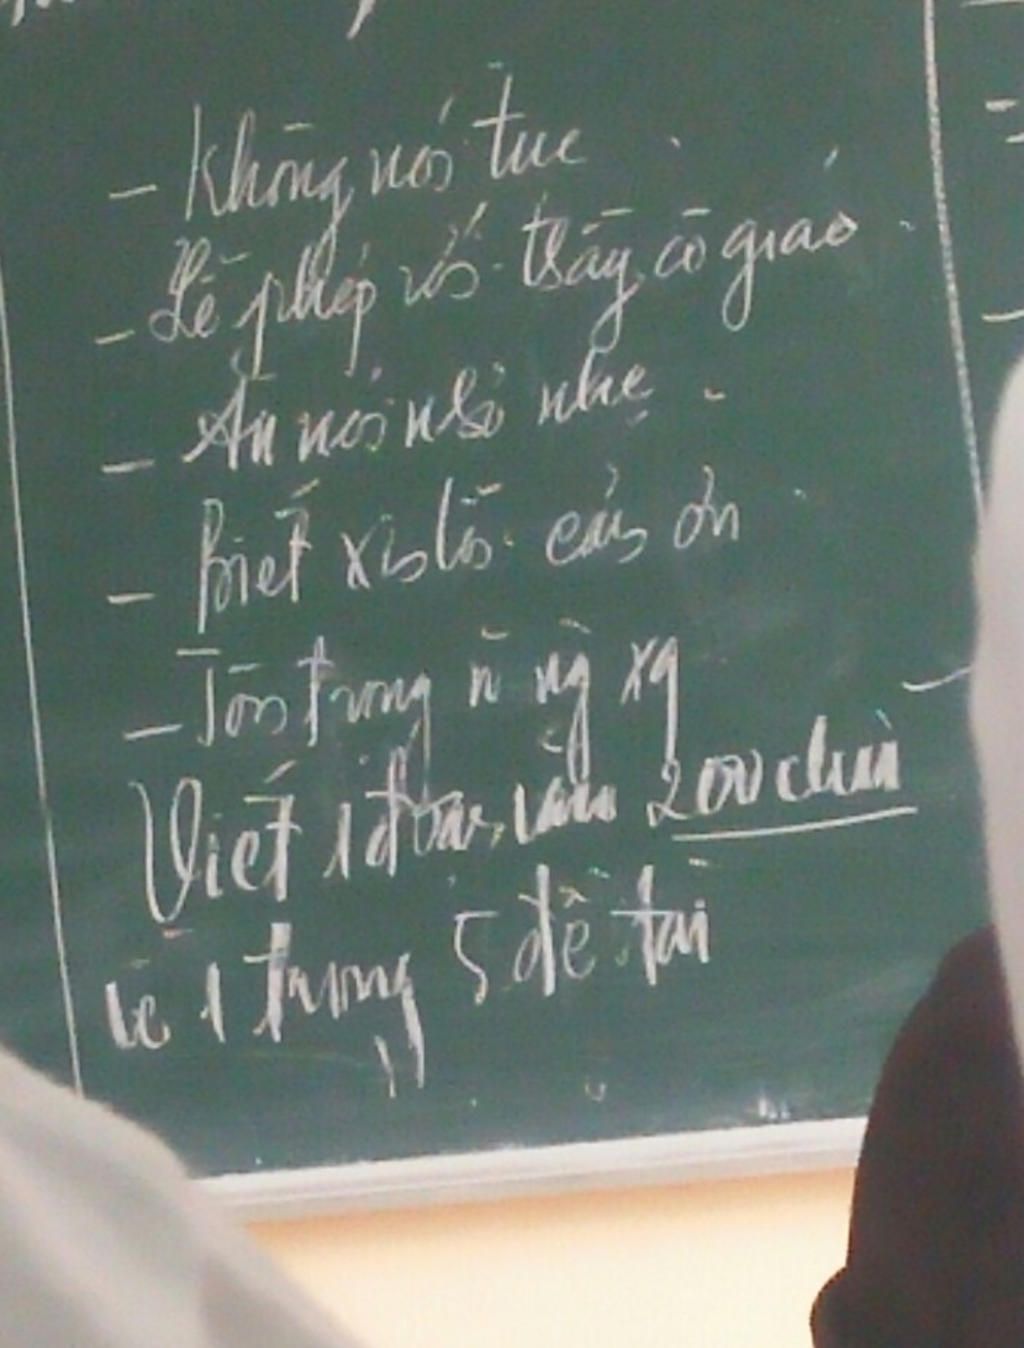 - Không nói tục
- Lễ phép với thầy, cô giáo
- Ăn nói nhỏ nhẹ
- Biết xin lỗi cảm ơn
- Tôn trọng n ng xq
Viết 1 đoạn văn 200 chữ
về 1 trong 5 đề tài